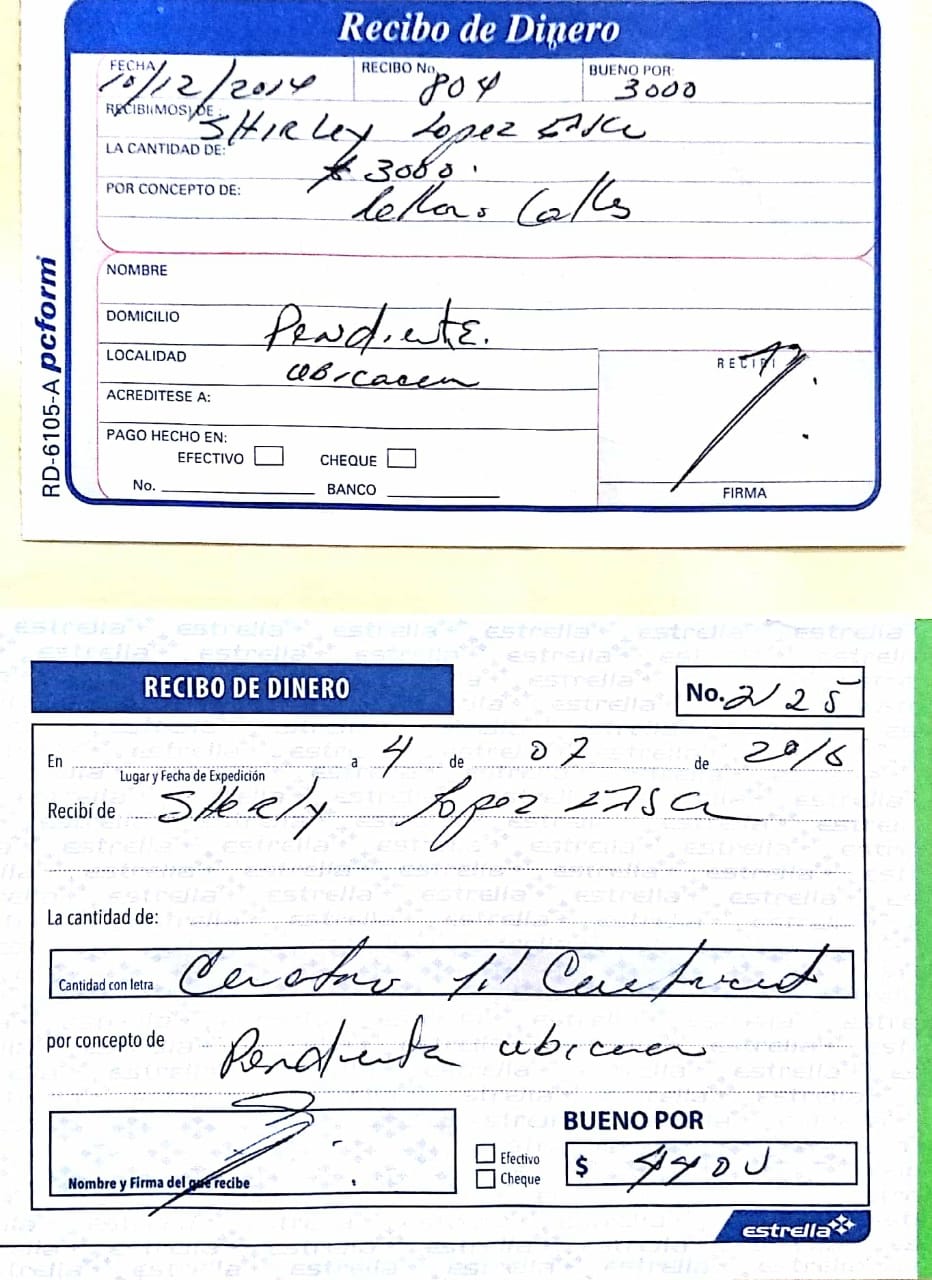 Recibo de Dinero
FECHA RECIBO No. BUENO POR:
10/12/2014 804 3000
RECIBI(MOS) DE: SHIRLEY Lopez
LA CANTIDAD DE: $ 3000.
POR CONCEPTO DE: Calles
NOMBRE
DOMICILIO Pendiente.
LOCALIDAD ubicacion
RECIBI
ACREDITESE A:
PAGO HECHO EN:
EFECTIVO CHEQUE
No. BANCO
FIRMA
RD-6105-A pcform
RECIBO DE DINERO No. 2125
En a 4 de 07 de 2016
Lugar y Fecha de Expedición
Recibí de SHerly Lopez
La cantidad de:
Cantidad con letra Cuatro
por concepto de Pendiente ubicacion
BUENO POR
Efectivo
Cheque
$ 4400
Nombre y Firma del que recibe
estrella